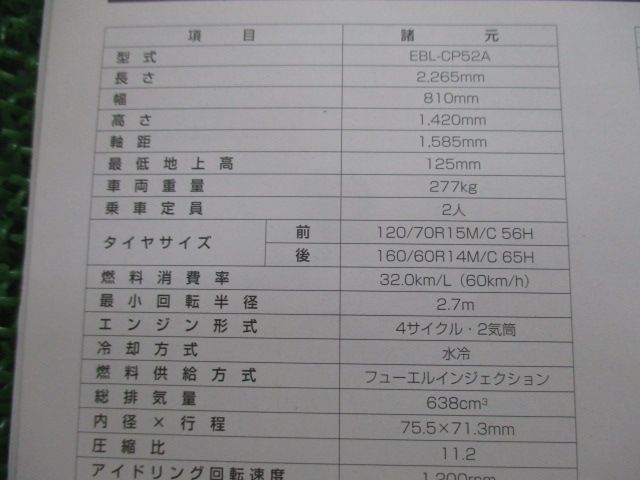 項目 諸元
型式 EBL-CP52A
長さ 2,265mm
幅 810mm
高さ 1,420mm
軸距 1,585mm
最低地上高 125mm
車両重量 277kg
乗車定員 2人
タイヤサイズ 前 120/70R15M/C 56H
後 160/60R14M/C 65H
燃料消費率 32.0km/L（60km/h）
最小回転半径 2.7m
エンジン形式 4サイクル・2気筒
冷却方式 水冷
燃料供給方式 フューエルインジェクション
総排気量 638cm³
内径×行程 75.5×71.3mm
圧縮比 11.2
アイドリング回転速度 1,200rpm